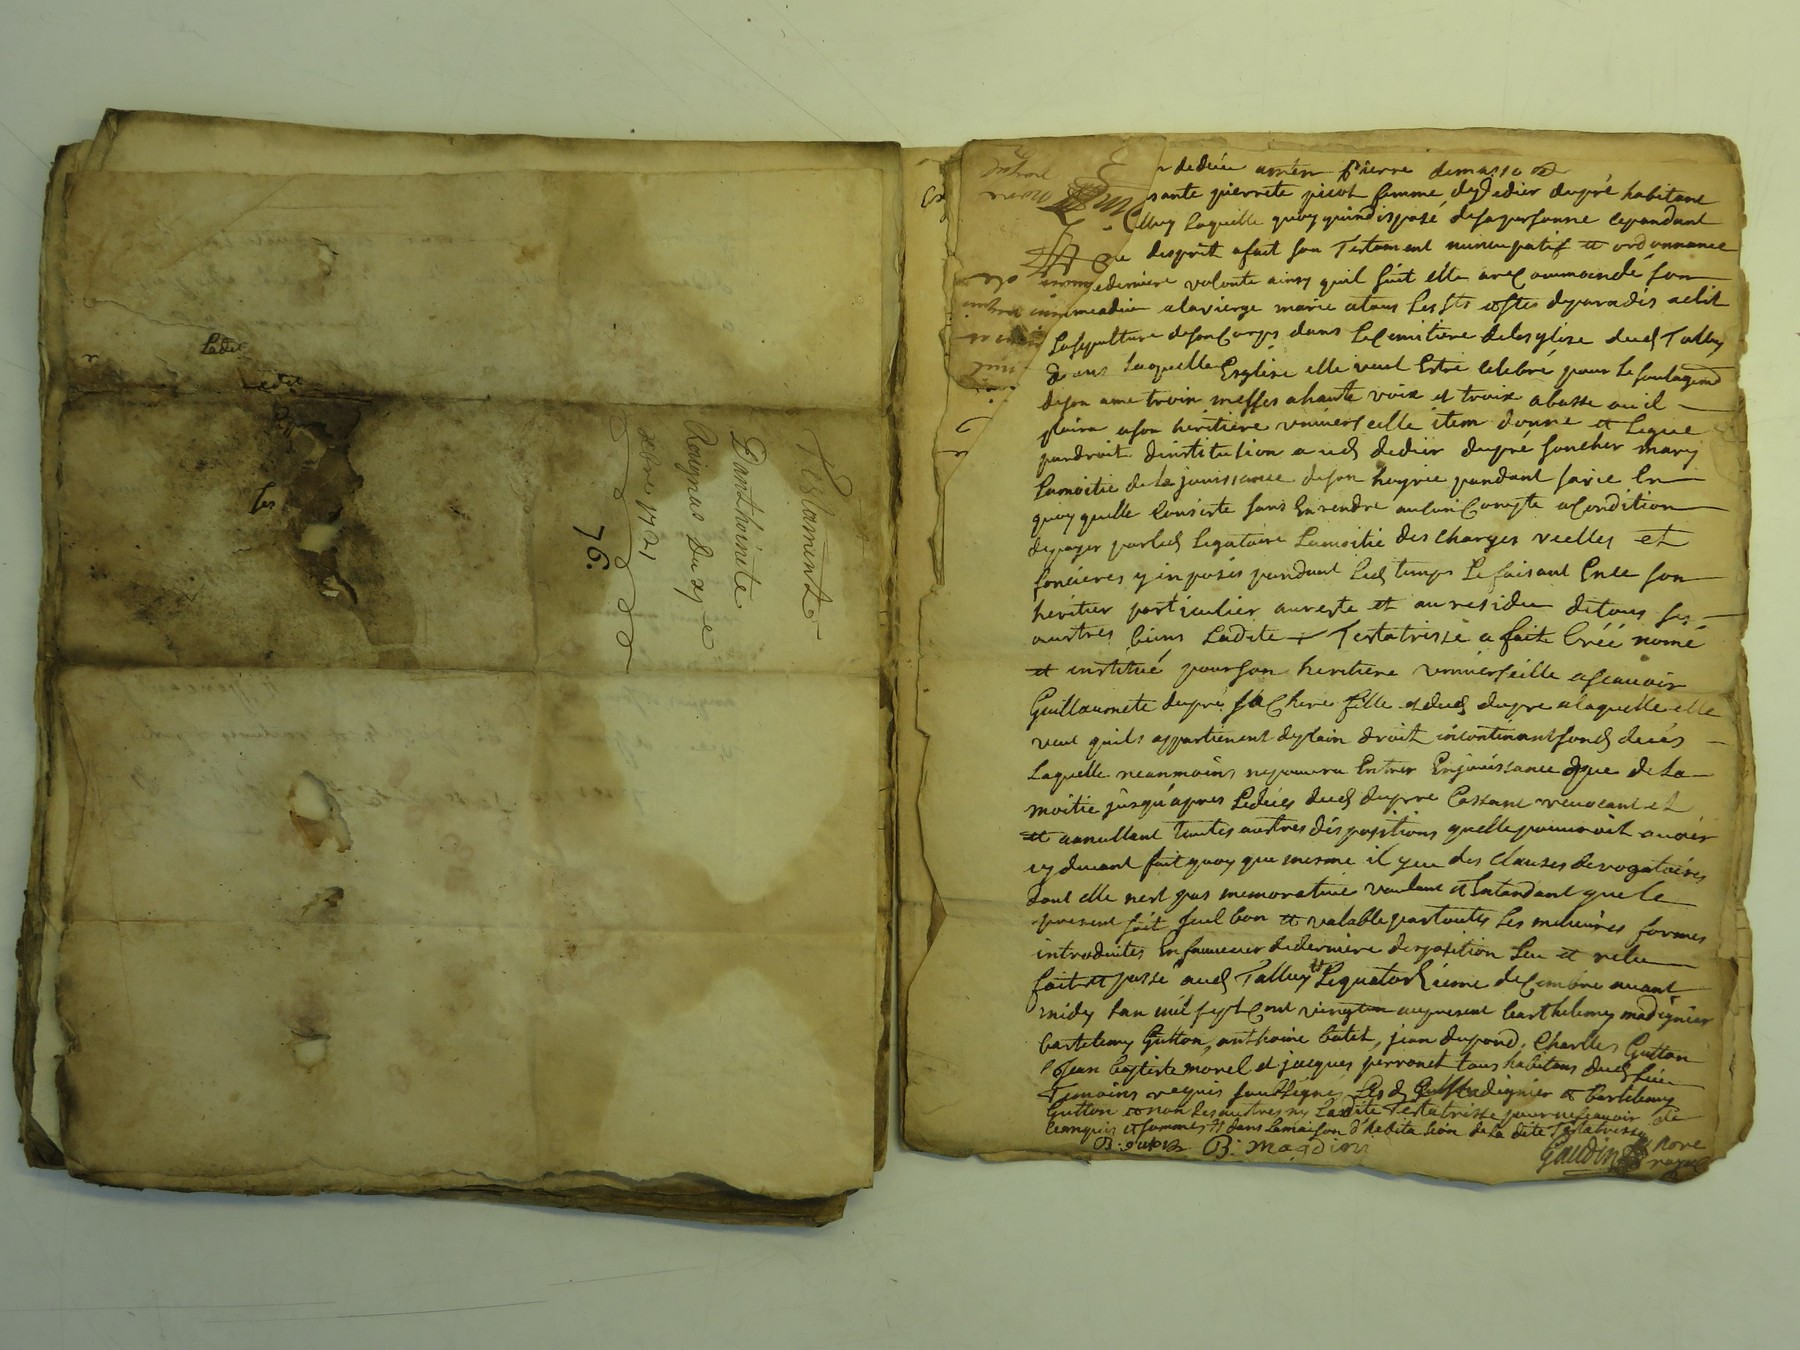 Testament
Danthoinete
Roignas Du 29e
xbre 1721
76.
Ladit
Ledit
Les
dedieu amen Pierre demasso
sante pierrete picot femme de Dedier dupré habitant
laquelle quoy quindisposé desapersonne cepandant
desprit a fait son Testament nuncupatif et ordonnance
dederniere volonte ainsy quil suit elle a recommandé son
ame adieu alavierge marie atous Les sts et stes deparadis aelit
Lasepulture deson Corps dans Lecimitiere delesglize dud Talluy
dans Laquelle Esglise elle veut Estre celebré pour Le soulagemt
deson ame trois messes ahaute voix et troix abasse ou il
plaira ason héritiere universelle item donne et legue
pardroit dinstitution aud dedier dupré soncher mary
Lamoitie de La jouissance deson hoyrie pandant savie En
quoy quelle Consiste sans En rendre aucun Compte aCondition
depayer parled Legataire Lamoitie des charges reelles et
foncieres y inposes pandant Led temps Le faisant Ence son
heritier particulier aureste et auresidu detous ses
auttres biens Ladite Testatrisse a fait Créé nomé
et institué pourson heritiere universeille ascavoir
Guillaumete dupré sa Chere fille et dud dupre alaquelle elle
veut quils appartienent deplain droit incontinant sond décés
Laquelle neanmoins nepourra Entrer Enjouissance que de La
moitie jusqu'apres Ledecés dud dupre Cassant revocant et
et annullant toutes auttres dispositions quelle pourroit avoir
cy devant fait quoy que mesme il y eu des clauses derogatoires
dont elle nest pas memorative voulant et Entandant que le
present soit seul bon et valable partoutes Les melieures formes
introduites Enfaveur dederniere disposition Leu et releu
fait et passé aud Talluy Lequatorzieme decembre avant
midy Lan mil sept Cent vingt un aupresent barthelemy madignier
bartelemy Gutton, anthoine batet, jean dupond, Charles Gutton
Jean baptiste morel et jacques perronet tous habitans dud Lieu
Temoins requis soussignés Lesd madignier et bartelemy
Gutton et non Les auttres ny Ladite Testatrisse pour ne scavoir de
ce enquis et sommes dans Lamaison d'habitation de La dite Testatrisse
B: Guton B: magdini
Gaudin nore
royal